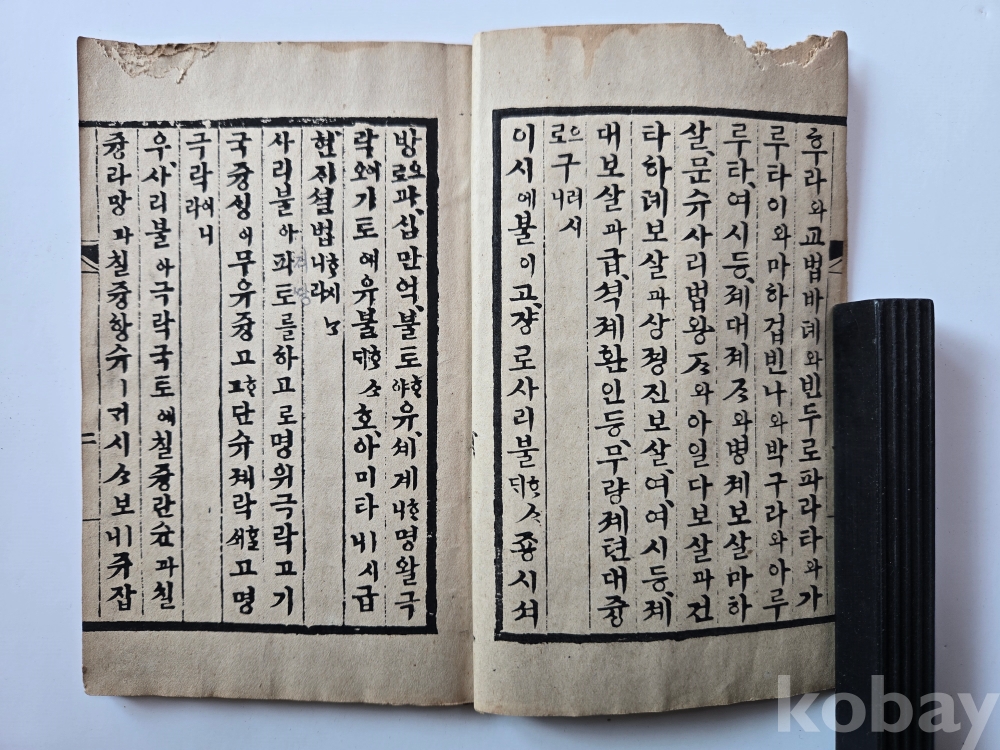 후라와고법바뎨와빈두로파라타와가
루타이와마하겁빈나와박구라와아루
루타,여시등,졔대졔ᄌᆞ와병졔보살마하
살,문슈사리법왕ᄌᆞ와아일다보살과건
타하뎨보살과상졍진보살,여,여시등,졔
대보살과급,석졔환인등,무량졔텬대즁
으로구
이시에불이고,쟝로사리불ᄒᆞ샤ᄃᆡ죵시셔
방으로과,십만억,불토ᄒᆞ야유,셰계ᄒᆞ니명왈극
락기토애유불호,아미타ㅣ시니급
현지셜법ᄒᆞ시니라
사리불아피토를하고로명위극락고기
국즁ᄉᆡᆼ이무유즁고ᄒᆞ고단슈졔락ᄒᆞᆯᄉᆡ고명
극락이니라
우,사리불아극락국토애칠즁란슌과칠
즁라망과칠즁항슈ㅣ시ᄉᆞ보ㅣ니쥬잡
kobay